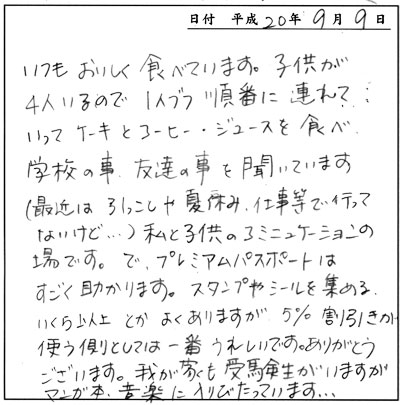 日付 平成20年9月9日
いつも おいしく 食べています。子供が
4人いるので 1人づつ 順番に 連れて
いって ケーキとコーヒー・ジュースを 食べ
学校の事、友達の事を聞いています
(最近は 引っこしや 夏休み、仕事等で行って
ないけど…) 私と子供のコミニュケーションの
場です。で、プレミアムパスポートは
すごく助かります。スタンプやシールを集める、
いくら以上 とか よくありますが 5% 割引きが
使う側としては一番うれしいです。ありがとう
ございます。我が家も受験生がいますが
マンガ本、音楽に 入りびたっています…